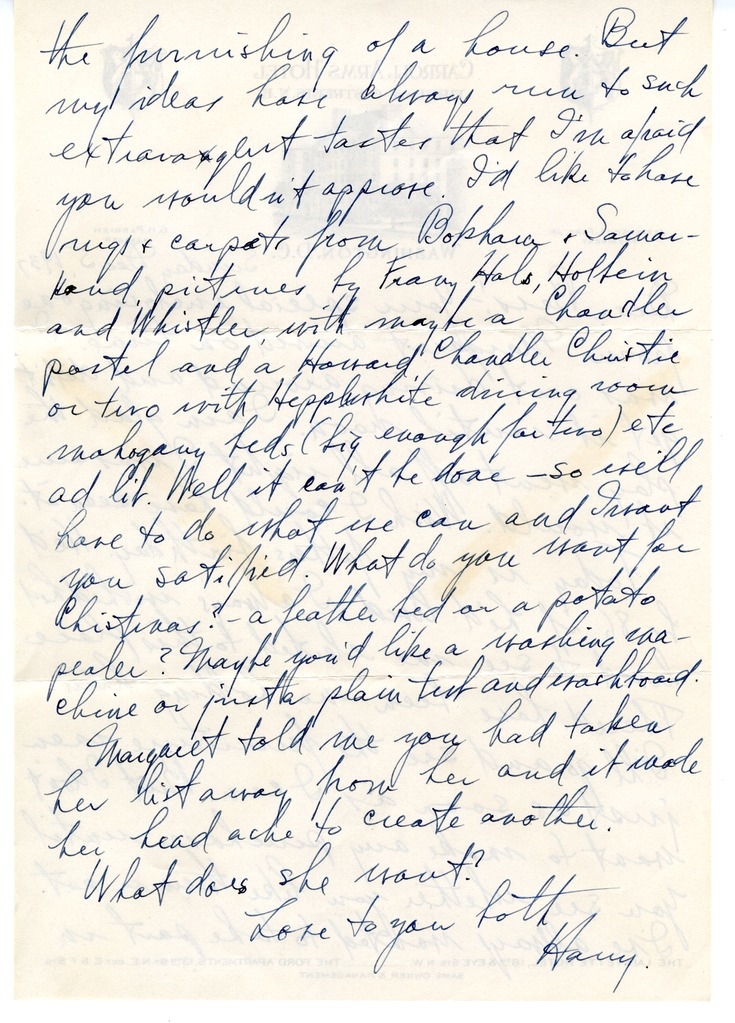 the furnishing of a house. But
my ideas have always run to such
extravagent tastes that I'm afraid
you wouldn't approve. I'd like to have
rugs & carpets from Bokhara & Samar-
kand, pictures by Franz Hals, Holbein
and Whistler, with maybe a Chandler
pastel and a Howard Chandler Christie
or two with Hepplewhite dining room
mahogany beds (big enough for two) etc
ad lib. Well it can't be done – so we'll
have to do what we can and I want
you satisfied. What do you want for
Christmas? – a feather bed or a potato
pealer? Maybe you'd like a washing ma-
chine or just a plain tub and washboard.
Margaret told me you had taken
her list away from her and it made
her head ache to create another.
What does she want?
Love to you both
Harry.